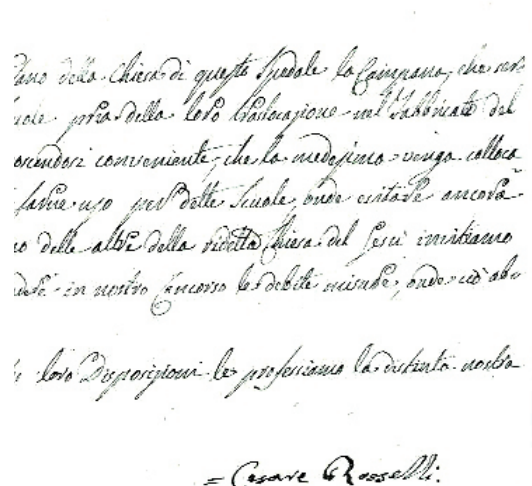 della Chiesa di questo Spedale la Campana, che
pria della loro traslocazione nel Fabbricato del
conveniente, che la medesima venga colloca
farne uso per dette Scuole, onde evitare ancora
delle altre della ridetta Chiesa del Gesù invitiamo
in nostro Concorso le debite misure, onde ciò abb
loro Disposizioni le professiamo la distinta nostra
= Cesare Rosselli.